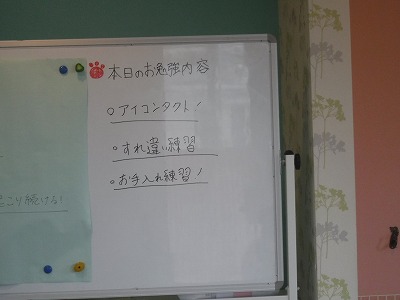 本日のお勉強内容
○アイコンタクト!
○すれ違い練習
○お手入れ練習!
こり続ける!